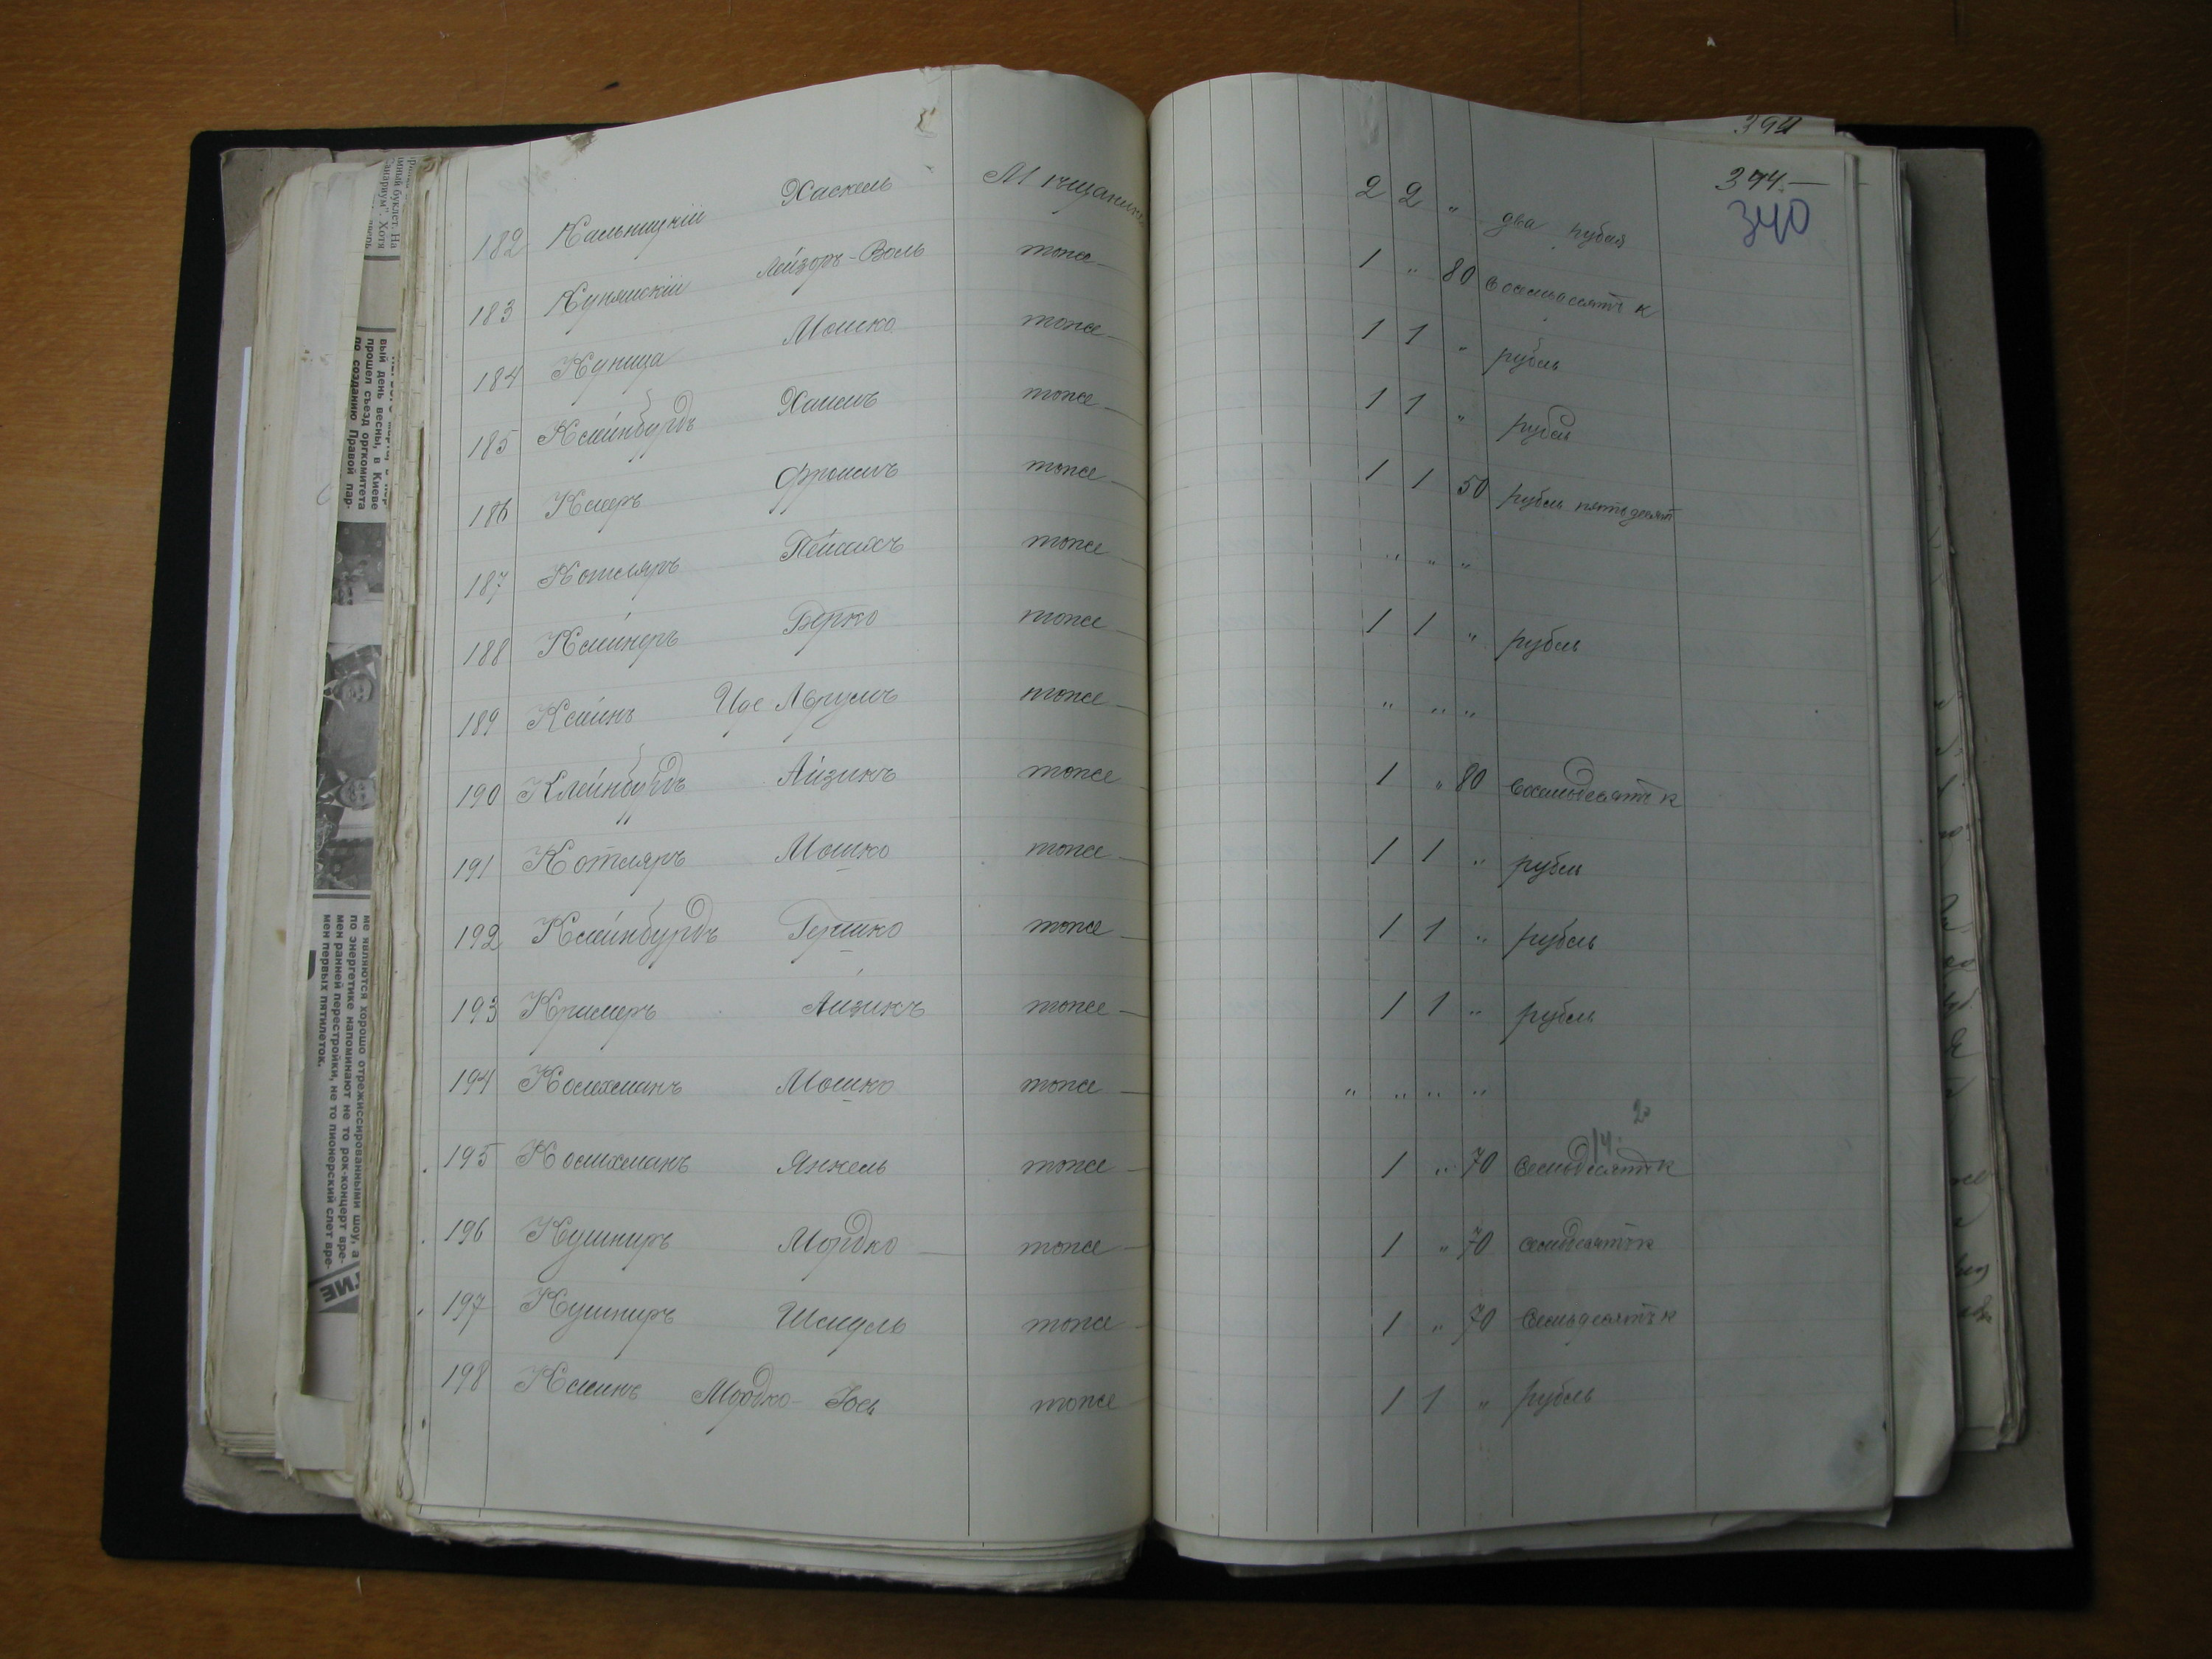 394
394 —
340
182 Кальницкій Хаскель Мѣщанинъ 2 2 " два рубля
183 Кунянскій Лейзоръ-Воль тоже 1 " 80 восемьдесятъ к
184 Куница Мошко тоже 1 1 " рубль
185 Клейнбурдъ Хаимъ тоже 1 1 " рубль
186 Клеръ Фроимъ тоже 1 1 50 рубль пятьдесят
187 Котляръ Пейсахъ тоже " " "
188 Клейнеръ Берко тоже 1 1 " рубль
189 Клейнъ Иде Аврумъ тоже " " "
190 Клейнбурдъ Айзикъ тоже 1 " 80 восемьдесятъ к
191 Котляръ Мошко тоже 1 1 " рубль
192 Клейнбурдъ Гершко тоже 1 1 " рубль
193 Крамеръ Айзикъ тоже 1 1 " рубль
194 Колихманъ Мошко тоже " " " "
195 Колихманъ Янкель тоже 1 " 70 семьдесятъ к
196 Кушниръ Мордко тоже 1 " 70 семьдесятъ к
197 Кушниръ Шмуль тоже 1 " 70 семьдесятъ к
198 Клейнъ Мордко- Іось тоже 1 1 " рубль
вый день весны, в Киеве
прошел съезд оргкомитета
по созданию Правой пар-
ме являются хорошо отрежиссированными шоу, а
по энергетике напоминают не то рок-концерт вре-
мен ранней перестройки, не то пионерский слет вре-
мен первых пятилеток.